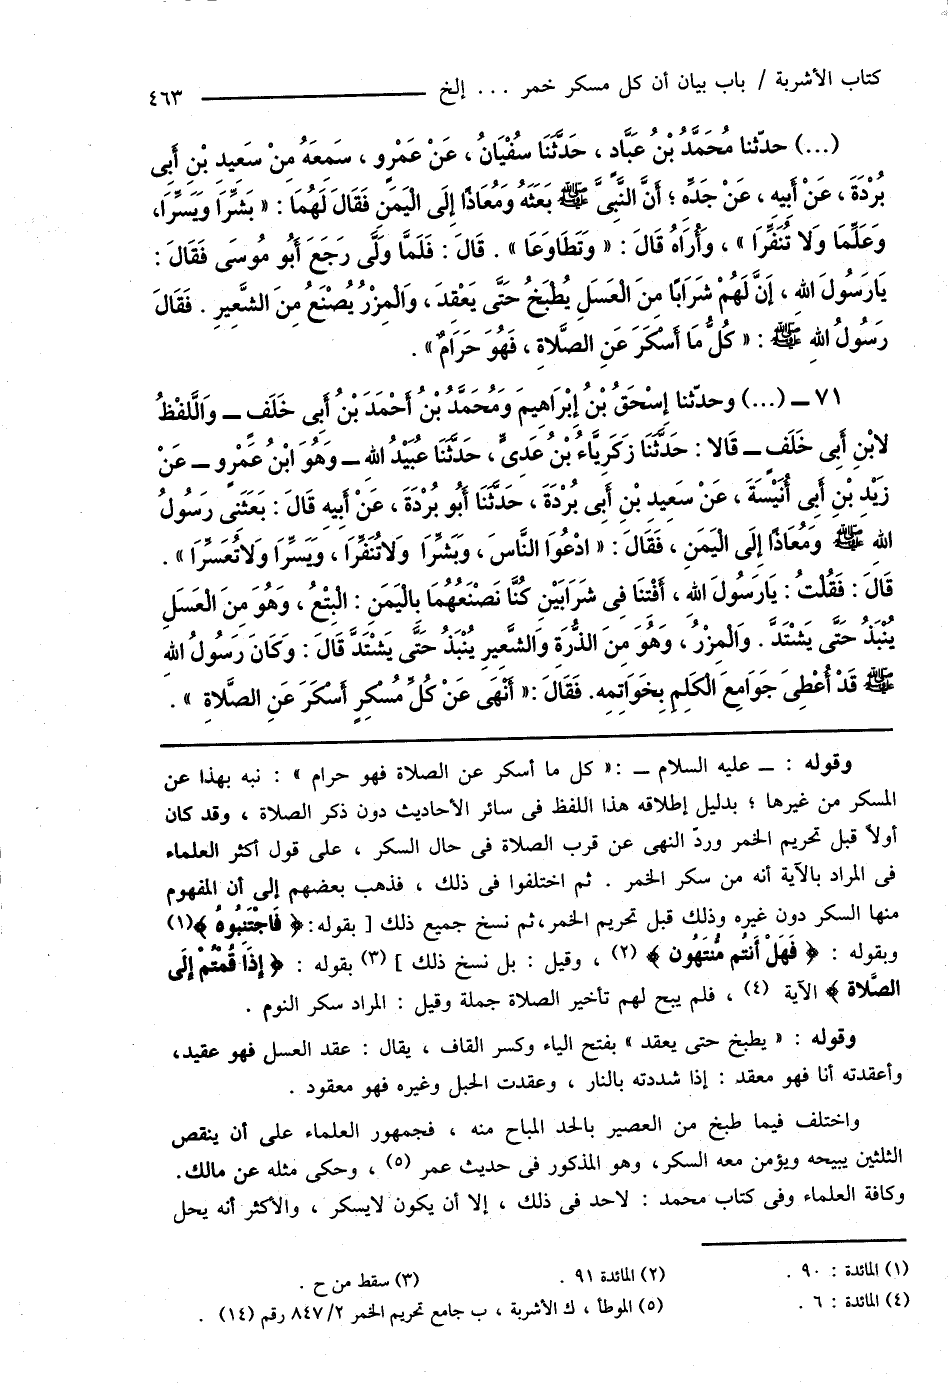 كتاب الأشربة / باب بيان أن كل مسكر خمر ... إلخ ــــــــــــــــ ٤٦٣
(...) حدّثنا مُحَمَّدُ بْنُ عَبَّادٍ ، حَدَّثَنَا سُفْيَانُ ، عَنْ عَمْرٍو ، سَمِعَهُ مِنْ سَعِيدِ بْنِ أَبِى
بُرْدَةَ ، عَنْ أَبِيهِ ، عَنْ جَدِّهِ ؛ أَنَّ النَّبِىَّ ﷺ بَعَثَهُ وَمُعَاذًا إِلَى الْيَمَنِ فَقَالَ لَهُمَا : « بَشِّرَا وَيَسِّرَا،
وَعَلِّمَا وَلا تُنَفِّرَا » ، وَأُرَاهُ قَالَ : « وَتَطَاوَعَا » . قَالَ : فَلَمَّا وَلَّى رَجَعَ أَبُو مُوسَى فَقَالَ :
يَارَسُولَ اللهِ ، إِنَّ لَهُمْ شَرَابًا مِنَ الْعَسَلِ يُطْبَخُ حَتَّى يَعْقِدَ ، وَالْمِزْرُ يُصْنَعُ مِنَ الشَّعِيرِ . فَقَالَ
رَسُولُ اللهِ ﷺ : « كُلُّ مَا أَسْكَرَ عَنِ الصَّلاةِ ، فَهُوَ حَرَامٌ » .
٧١ ــ (...) وحدّثنا إِسْحَقُ بْنُ إِبْرَاهِيمَ وَمُحَمَّدُ بْنُ أَحْمَدَ بْنِ أَبِى خَلَفٍ ــ وَاللَّفْظُ
لابْنِ أَبِى خَلَفٍ ــ قَالا : حَدَّثَنَا زَكَرِيَّاءُ بْنُ عَدِىٍّ ، حَدَّثَنَا عُبَيْدُ اللهِ ــ وَهُوَ ابْنُ عَمْرٍو ــ عَنْ
زَيْدِ بْنِ أَبِى أُنَيْسَةَ ، عَنْ سَعِيدِ بْنِ أَبِى بُرْدَةَ ، حَدَّثَنَا أَبُو بُرْدَةَ ، عَنْ أَبِيهِ قَالَ : بَعَثَنِى رَسُولُ
اللهِ ﷺ وَمُعَاذًا إِلَى الْيَمَنِ ، فَقَالَ : « ادْعُوَا النَّاسَ ، وَبَشِّرَا وَلاتُنَفِّرَا ، وَيَسِّرَا وَلاتُعَسِّرَا » .
قَالَ : فَقُلْتُ : يَارَسُولَ اللهِ ، أَفْتِنَا فِى شَرَابَيْنِ كُنَّا نَصْنَعُهُمَا بِالْيَمَنِ : الْبِتْعُ ، وَهُوَ مِنَ الْعَسَلِ
يُنْبَذُ حَتَّى يَشْتَدَّ . وَالْمِزْرُ ، وَهُوَ مِنَ الذُّرَةِ وَالشَّعِيرِ يُنْبَذُ حَتَّى يَشْتَدَّ قَالَ : وَكَانَ رَسُولُ اللهِ
ﷺ قَدْ أُعْطِىَ جَوَامِعَ الْكَلِمِ بِخَوَاتِمِهِ. فَقَالَ :« أَنْهَى عَنْ كُلِّ مُسْكِرٍ أَسْكَرَ عَنِ الصَّلاةِ » .
وقوله : ــ عليه السلام ــ :« كل ما أسكر عن الصلاة فهو حرام » : نبه بهذا عن
المسكر من غيرها ؛ بدليل إطلاقه هذا اللفظ فى سائر الأحاديث دون ذكر الصلاة ، وقد كان
أولاً قبل تحريم الخمر وردّ النهى عن قرب الصلاة فى حال السكر ، على قول أكثر العلماء
فى المراد بالآية أنه من سكر الخمر . ثم اختلفوا فى ذلك ، فذهب بعضهم إلى أن المفهوم
منها السكر دون غيره وذلك قبل تحريم الخمر،ثم نسخ جميع ذلك [ بقوله:﴿ فَاجْتَنِبُوهُ ﴾(١)
وبقوله : ﴿ فَهَلْ أَنتُم مُّنتَهُون ﴾ (٢) ، وقيل : بل نسخ ذلك ] (٣) بقوله : ﴿ إِذَا قُمْتُمْ إِلَى
الصَّلاة ﴾ الآية (٤) ، فلم يبح لهم تأخير الصلاة جملة وقيل : المراد سكر النوم .
وقوله : « يطبخ حتى يعقد » بفتح الياء وكسر القاف ، يقال : عقد العسل فهو عقيد،
وأعقدته أنا فهو معقد : إذا شددته بالنار ، وعقدت الحبل وغيره فهو معقود .
واختلف فيما طبخ من العصير بالحد المباح منه ، فجمهور العلماء على أن ينقص
الثلثين يبيحه ويؤمن معه السكر، وهو المذكور فى حديث عمر (٥) ، وحكى مثله عن مالك.
وكافة العلماء وفى كتاب محمد : لاحد فى ذلك ، إلا أن يكون لايسكر ، والأكثر أنه يحل
(١) المائدة : ٩٠ . (٢) المائدة ٩١ . (٣) سقط من ح .
(٤) المائدة : ٦ . (٥) الموطأ ، ك الأشربة ، ب جامع تحريم الخمر ٢/ ٨٤٧ رقم (١٤) .